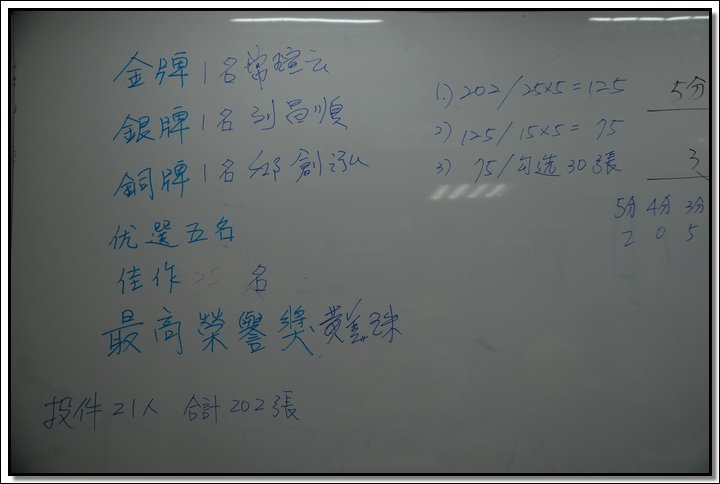 金牌 1名 常瑄云
銀牌 1名 刘昌順
銅牌 1名 邱創泓
优選五名
佳作 25 名
最高榮譽奬 黃美珠
投件21人 合計202張
1.) 202/25x5=125
2) 125/15x5= 75
3) 75/勾选30張
5分
3
5分 4分 3分
2 0 5